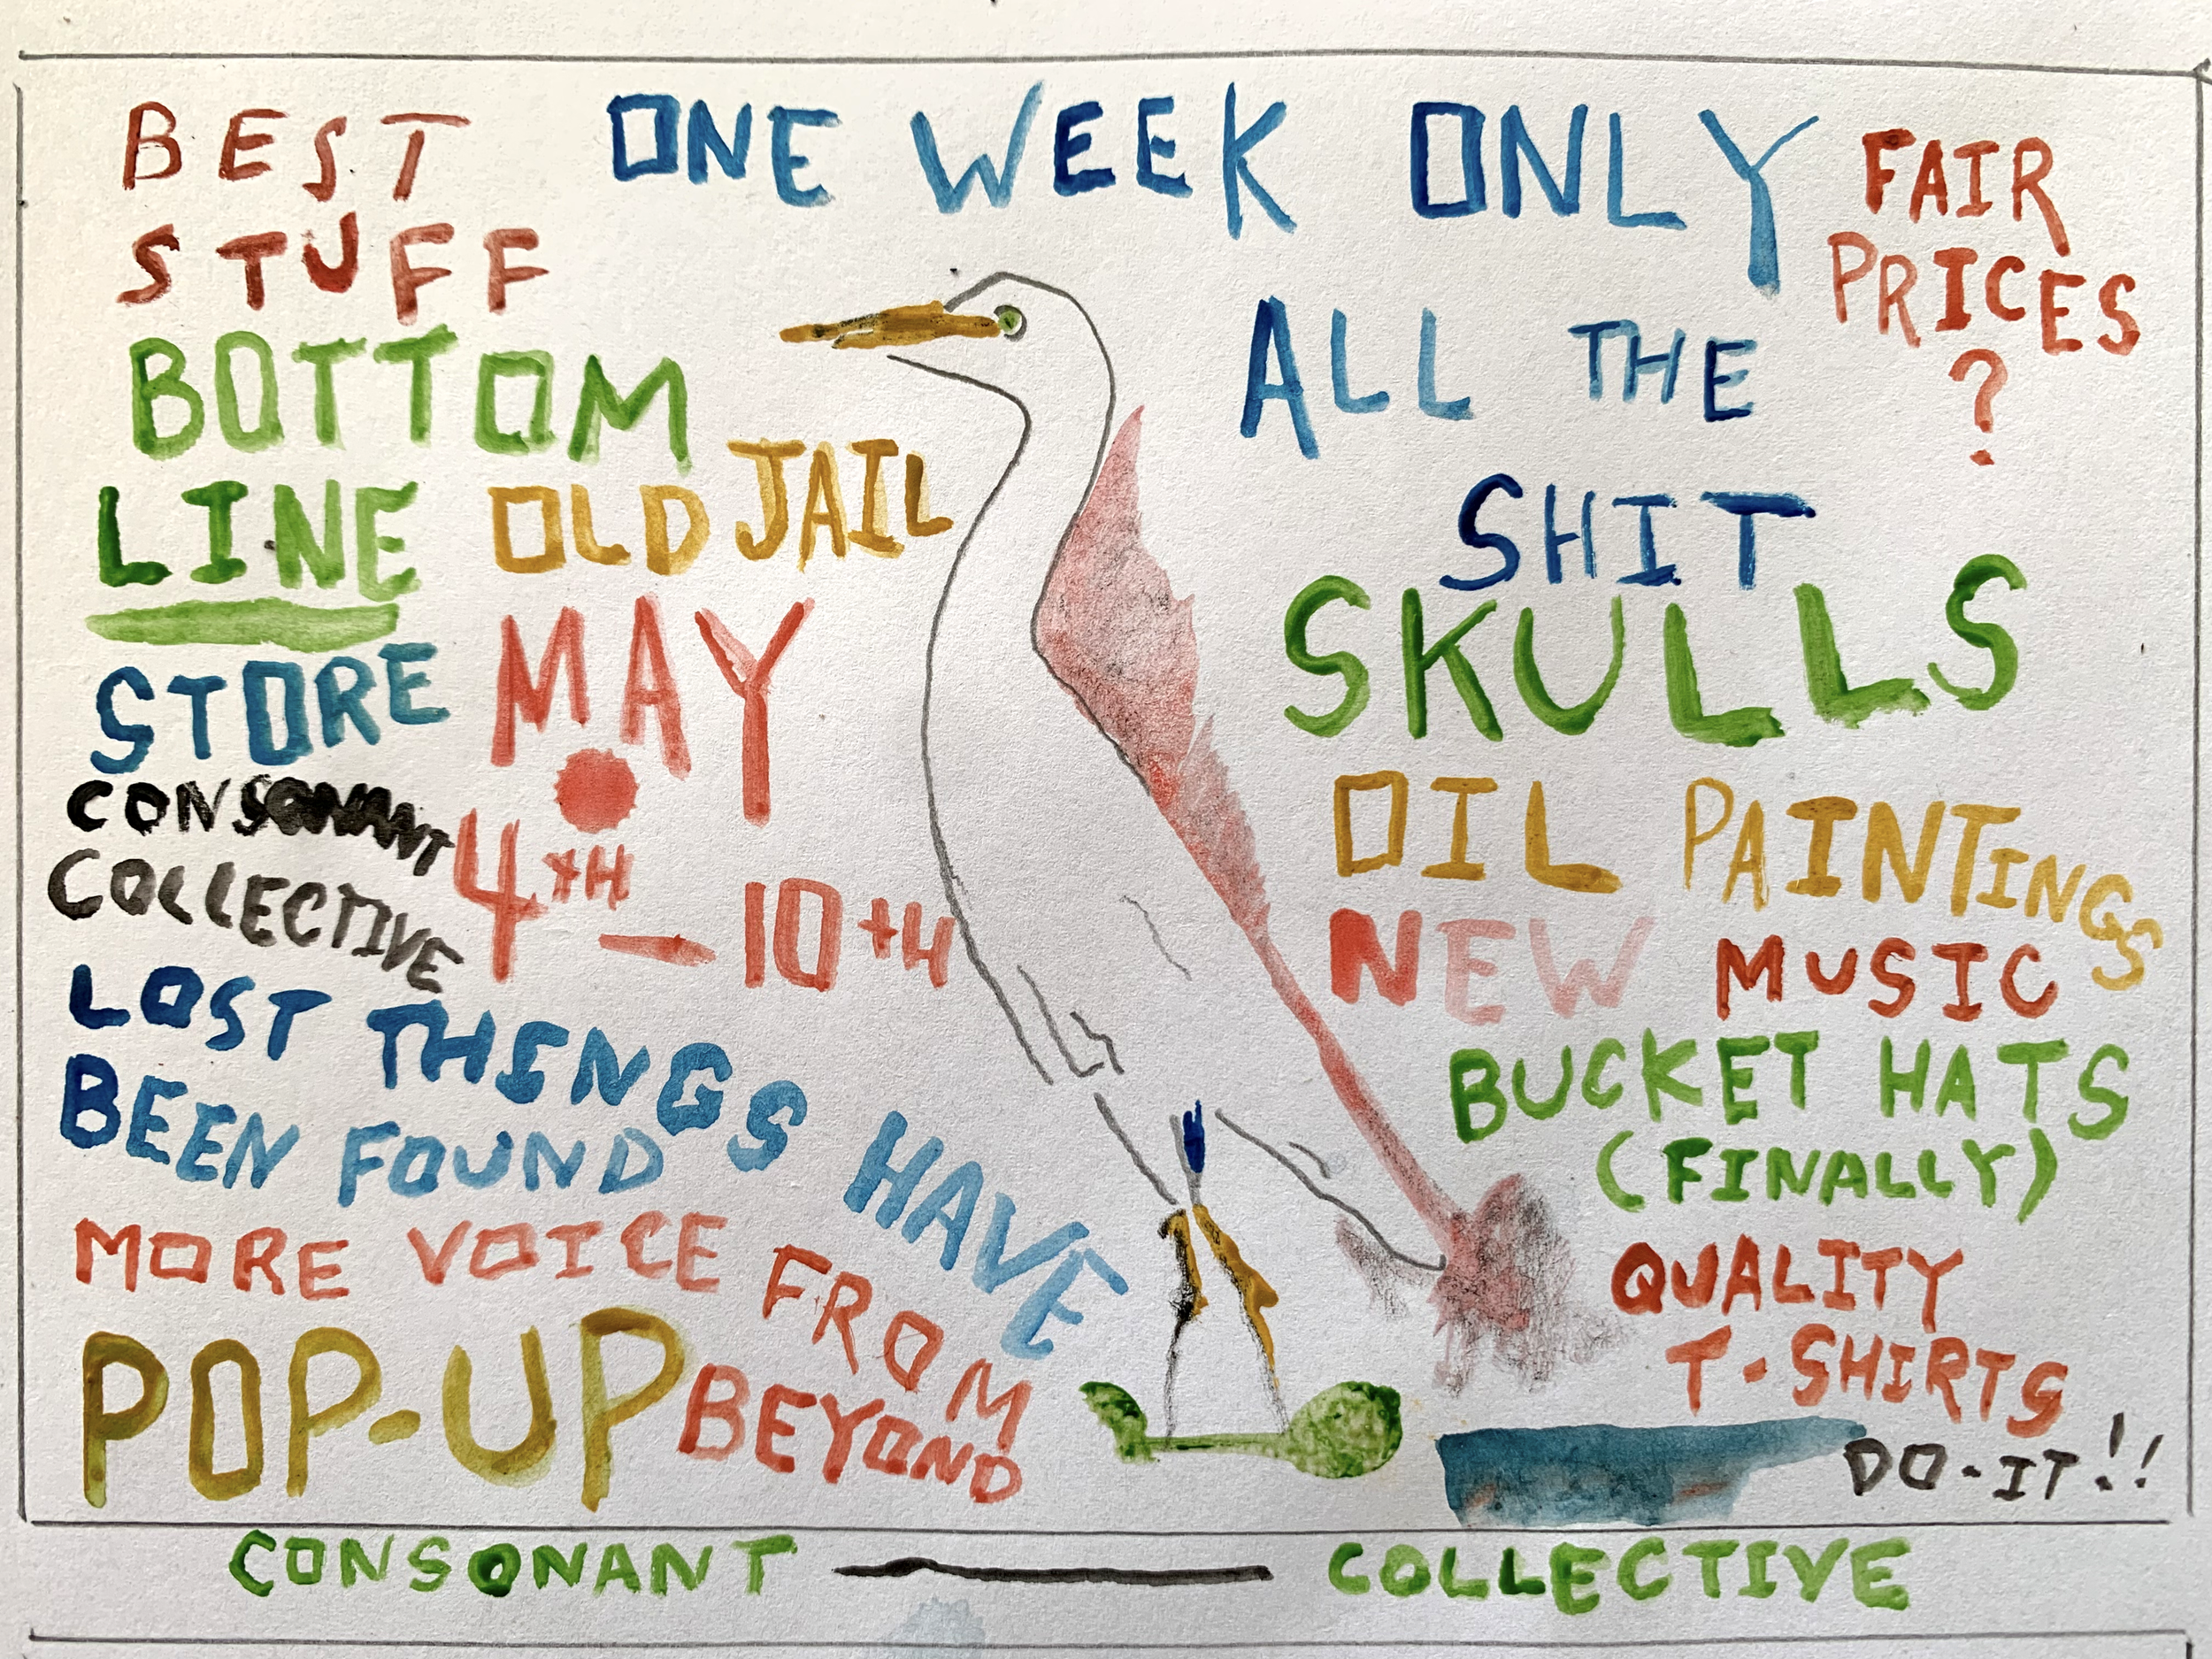 BEST
STUFF
BOTTOM
LINE
STORE
CONSONANT
COLLECTIVE
OLD JAIL
MAY
4TH - 10TH
LOST THINGS HAVE
BEEN FOUND
MORE VOICE FROM
BEYOND
POP-UP
ONE WEEK ONLY
FAIR
PRICES
?
ALL THE
SHIT
SKULLS
OIL PAINTINGS
NEW MUSIC
BUCKET HATS
(FINALLY)
QUALITY
T-SHIRTS
DO-IT!!
CONSONANT — COLLECTIVE